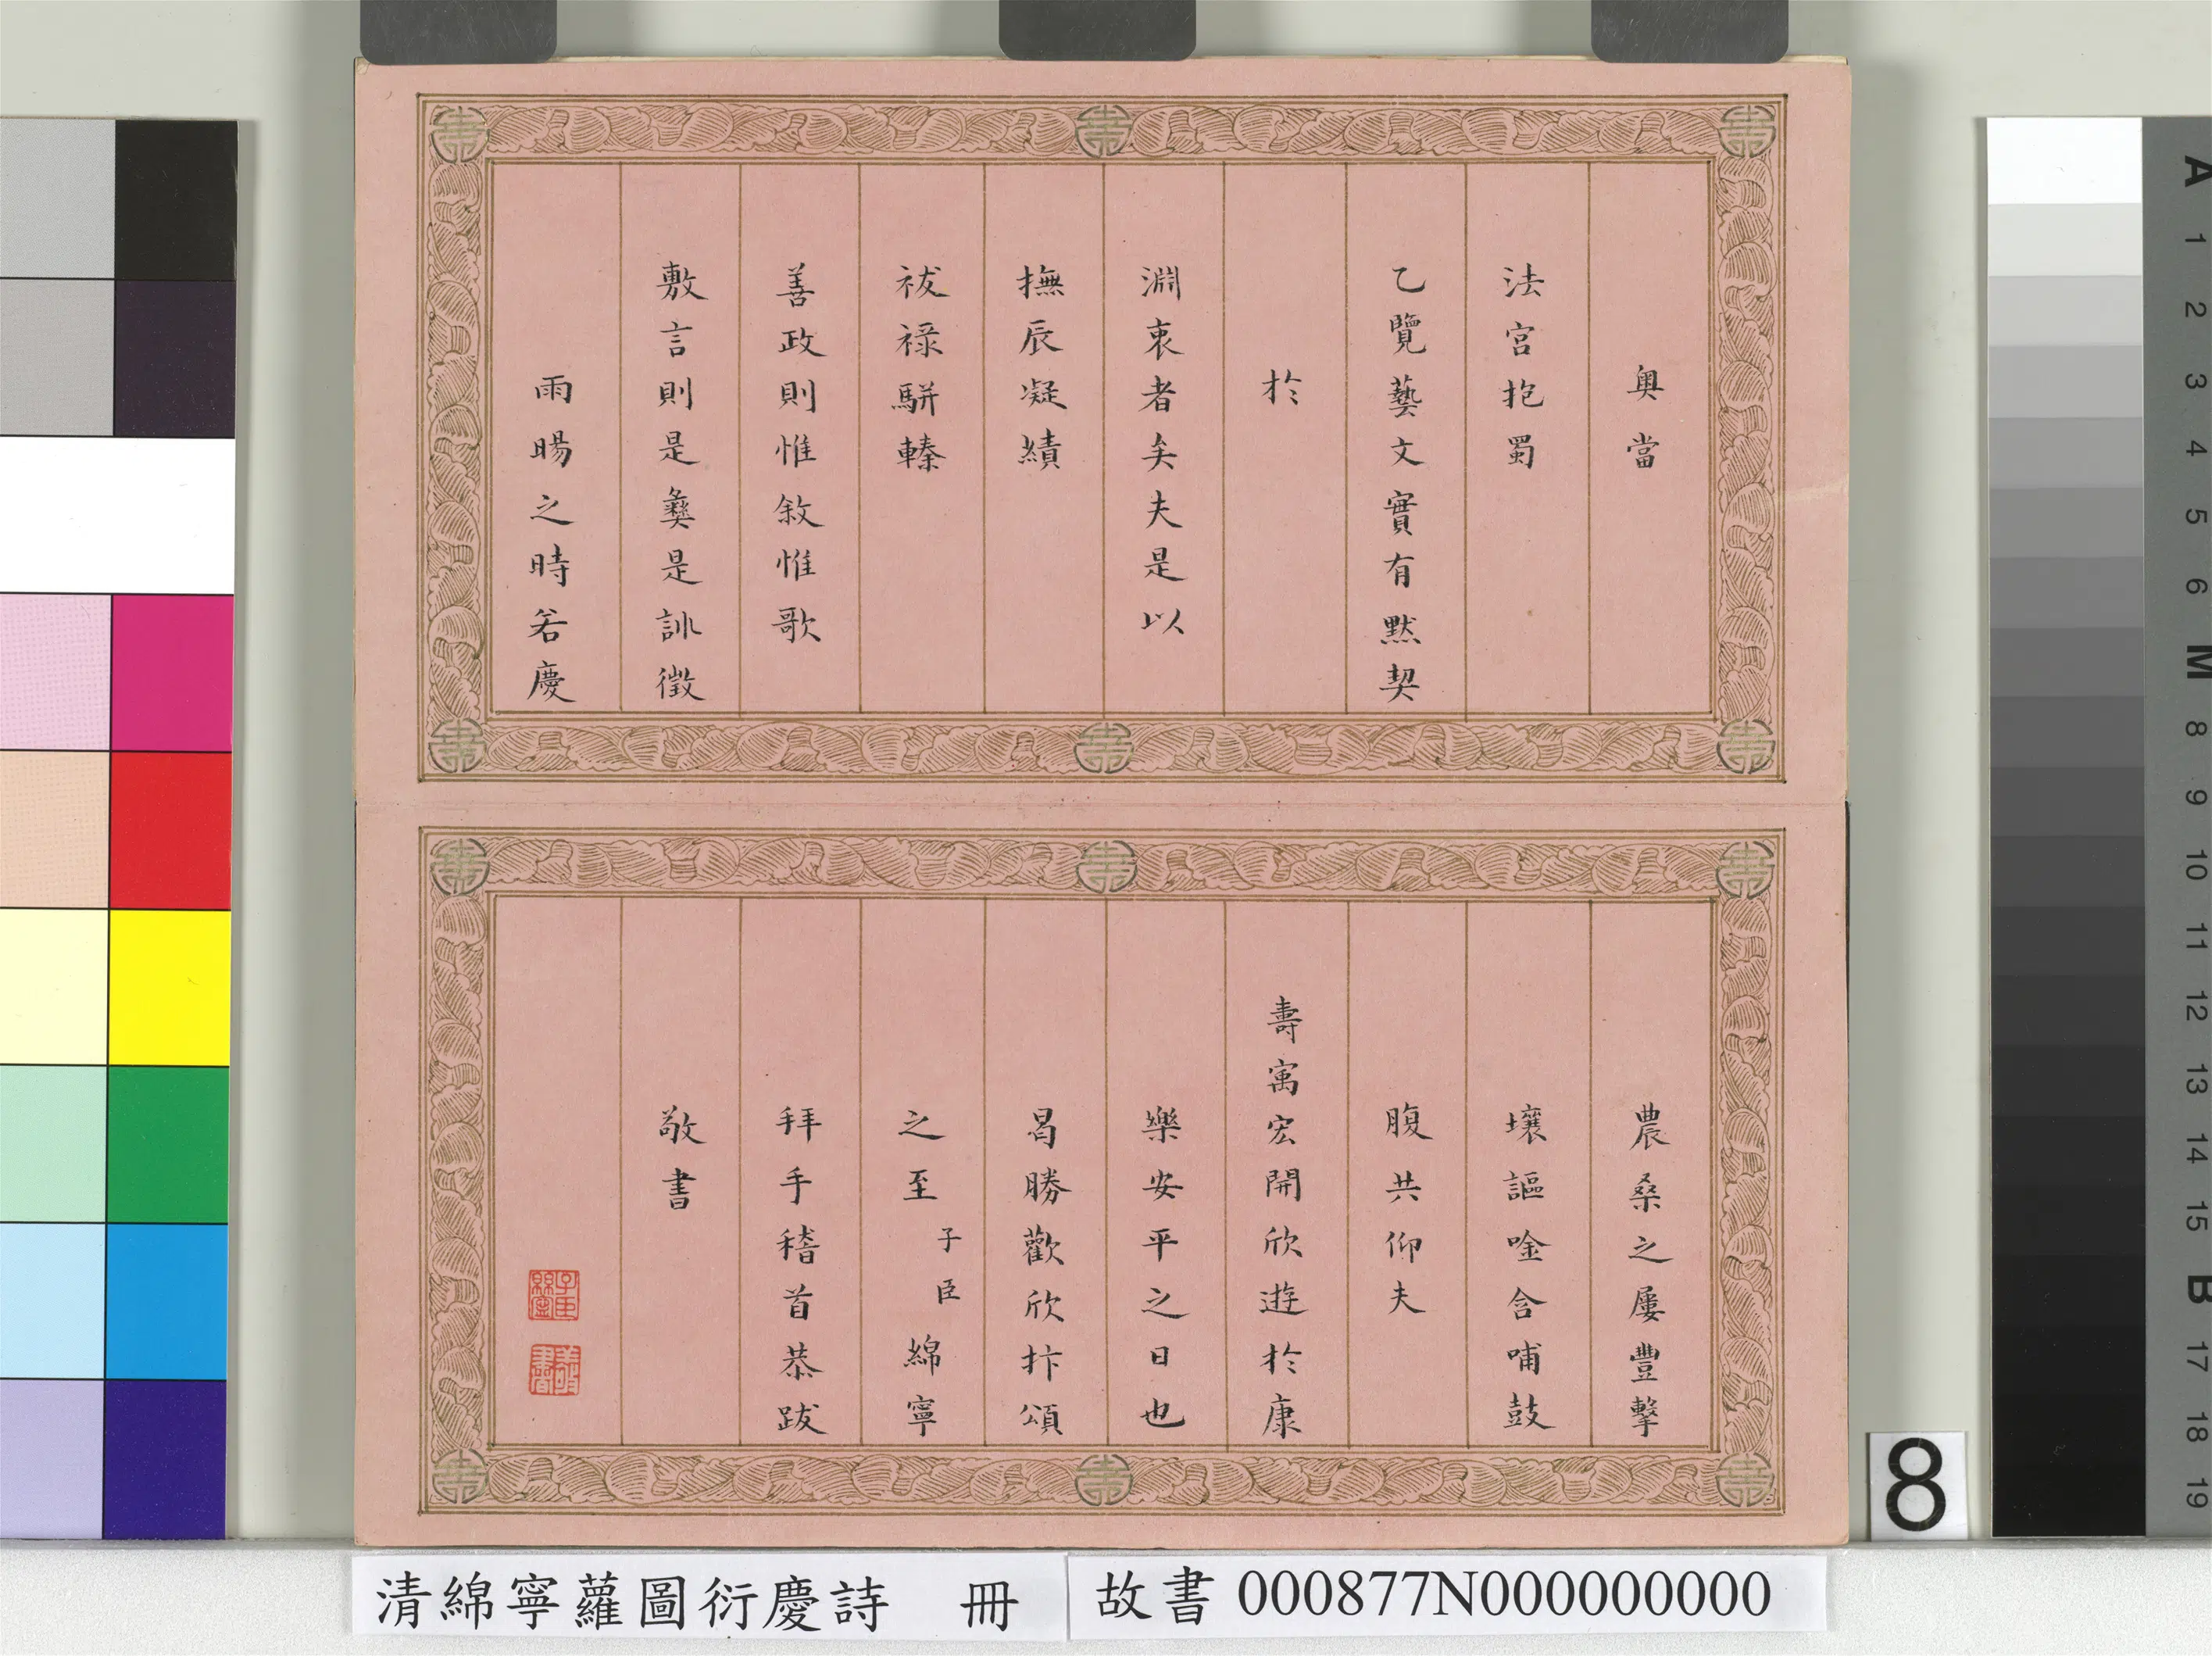 奥當
法宮抱蜀
乙覽藝文實有默契
於
淵衷者矣夫是以
撫辰凝績
祓祿駢臻
善政則惟敘惟歌
敷言則是彝是訓徵
雨暘之時若慶
農桑之屢豐擊
壤謳唫含哺鼓
腹共仰夫
壽寓宏開欣遊於康
樂安平之日也
曷勝歡欣抃頌
之至子臣綿寧
拜手稽首恭跋
敬書
清綿寧蘿圖衍慶詩 冊
故書000877N000000000
8
A
1
2
3
4
5
6
M
8
9
10
11
12
13
14
15
B
17
18
19